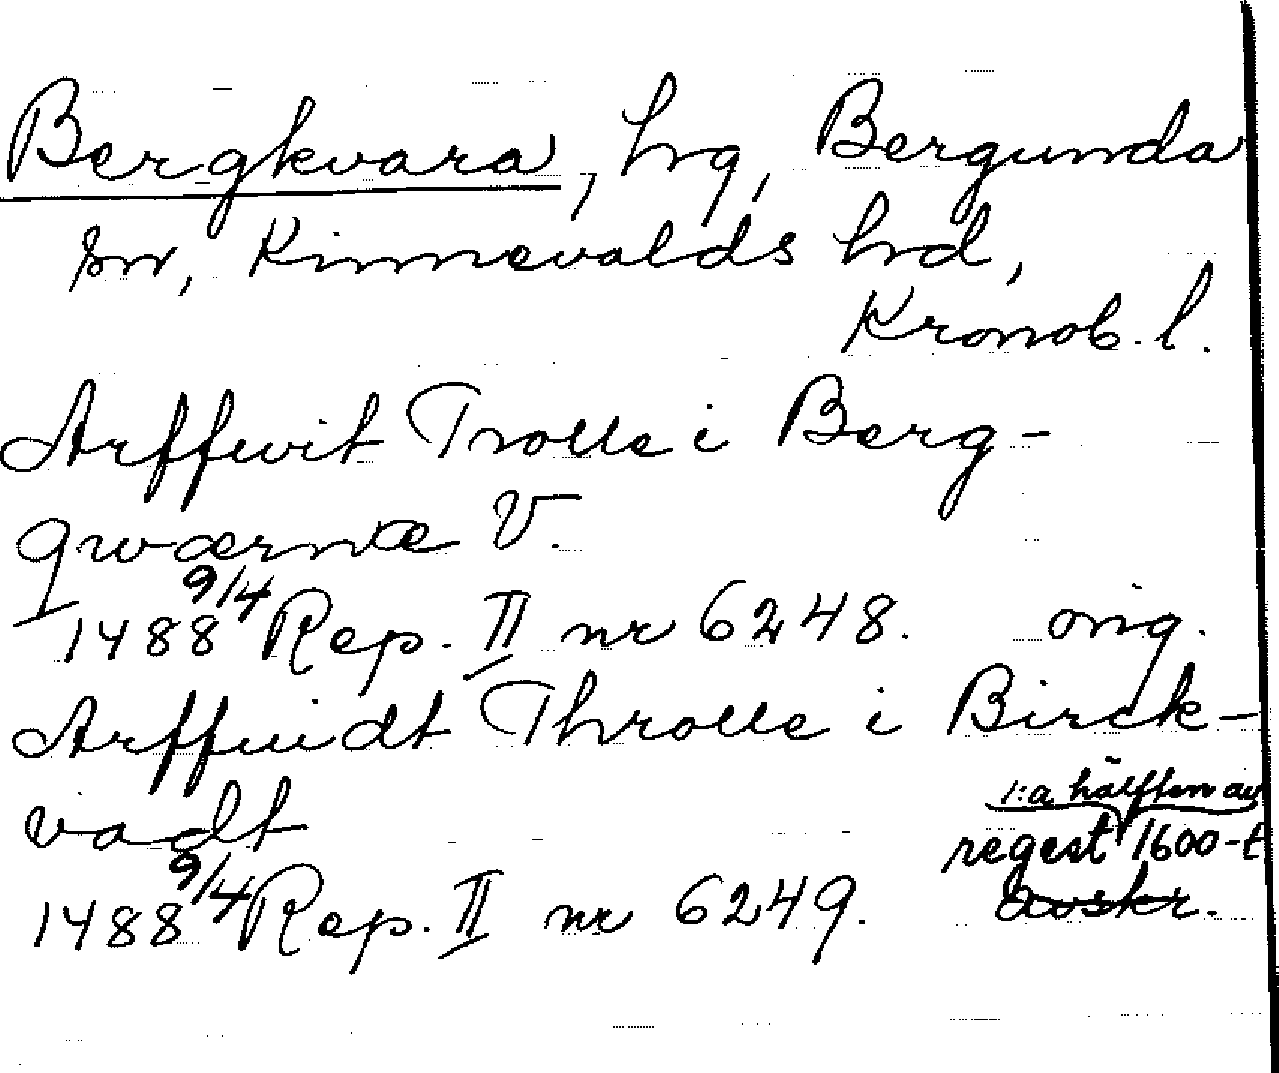 Bergkvara, hrg, Bergunda
sn, Kinnevalds hrd,
Kronob. l.
Arffwit Trolle i Berg-
qwærnæ V.
1488 9/4 Rep. II nr 6248. orig.
Arffuidt Throlle i Birck-
vadt
1:a hälften av
regest 1600-t
1488 9/4 Rep. II nr 6249. avskr.